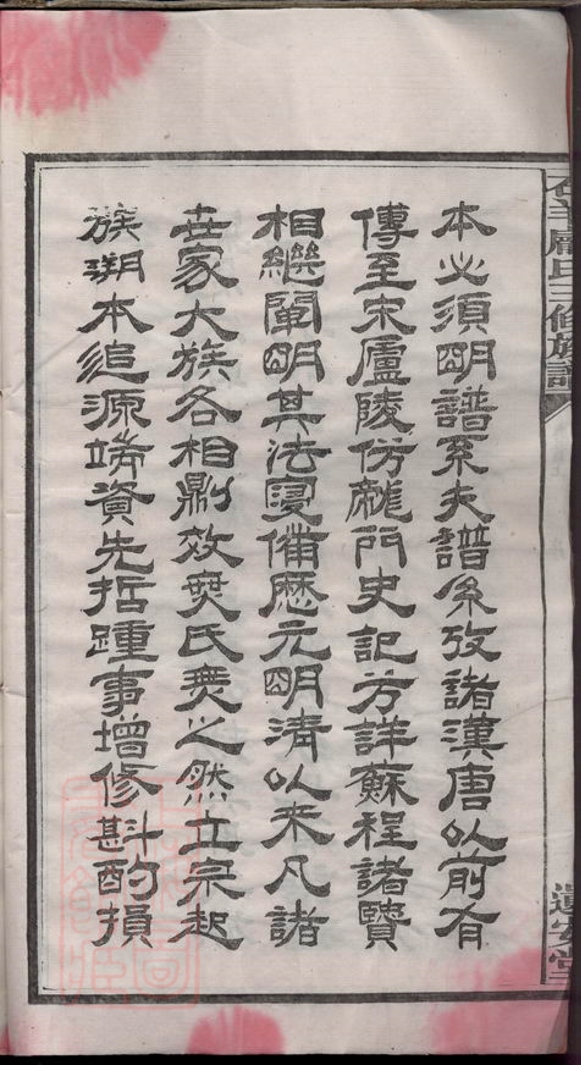 石羊龐氏三修族譜
遺安堂
本必須明譜系夫譜系攷諸漢唐以前有
傳至宋廬陵仿龍門史記芳詳蘇程諸賢
相繼闡明其法寖備歷元明清以来凡諸
世家大族各相剏效龐氏龐之然立宗起
族溯本追源端資先哲踵事增修斟酌損